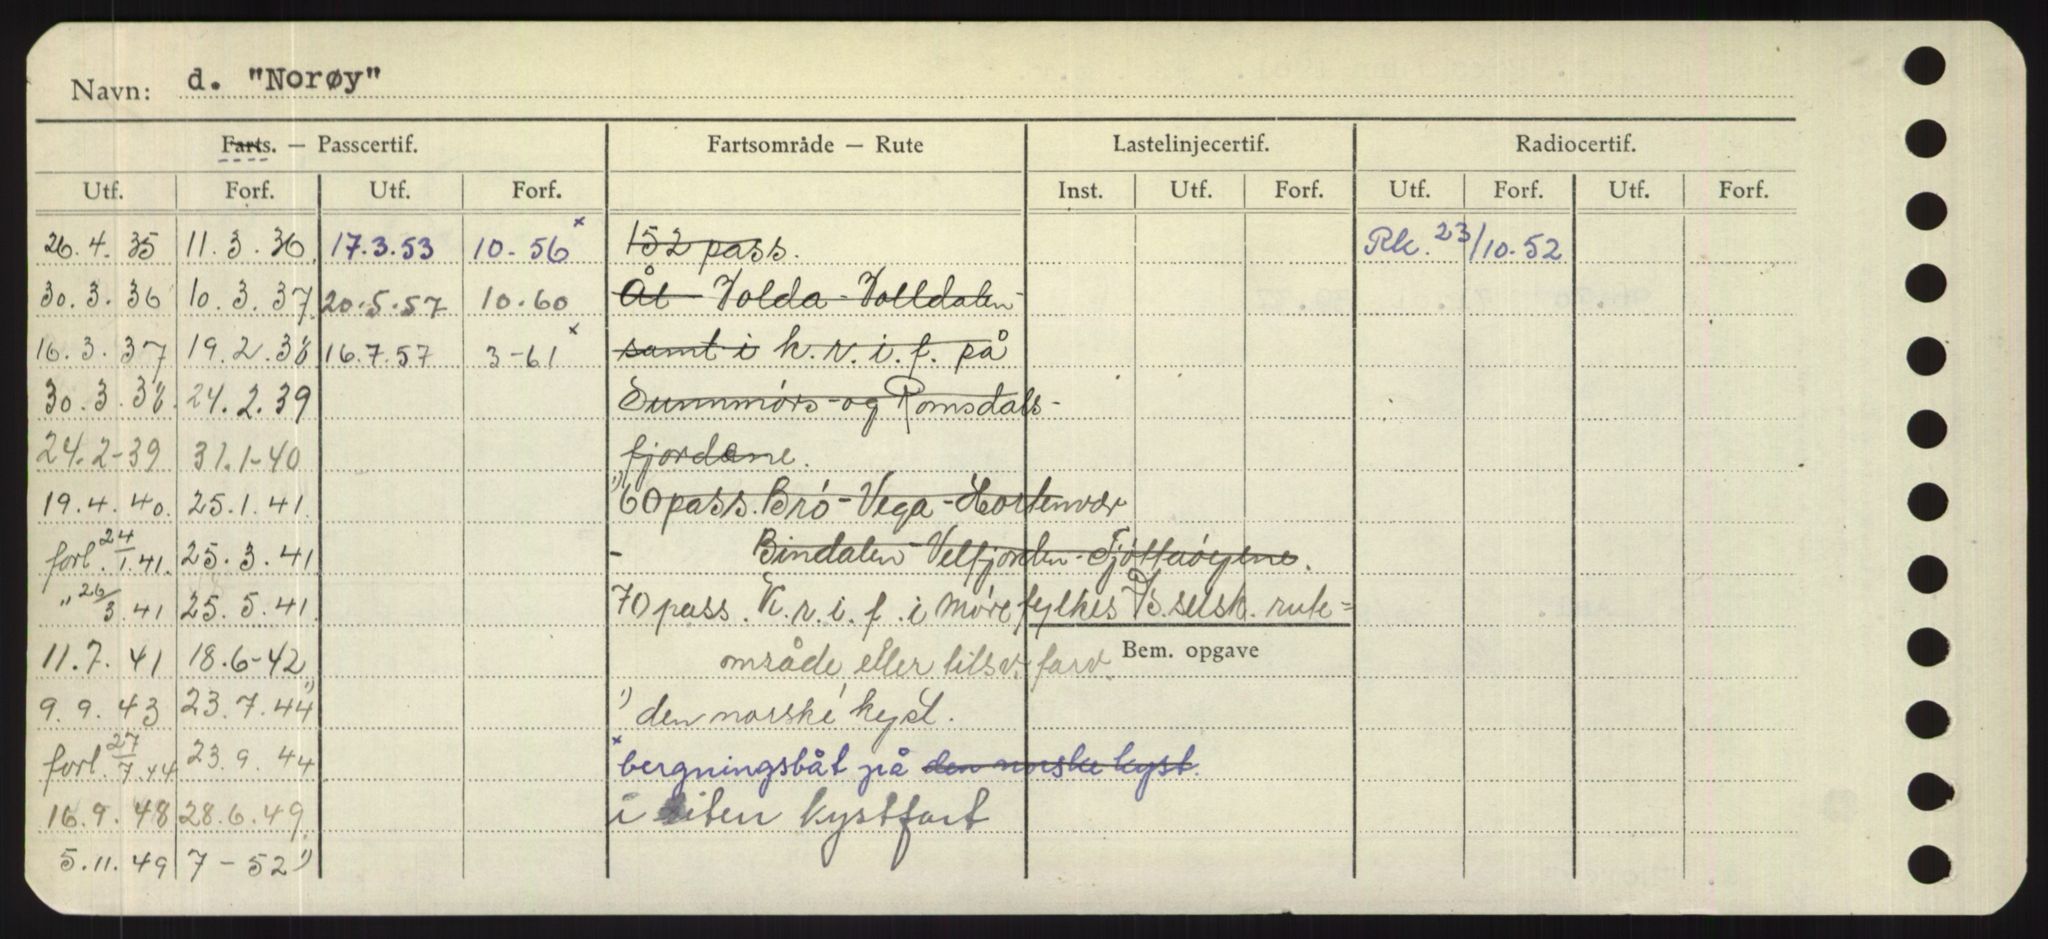 Navn: d. "Norøy"
Farts. — Passcertif. Fartsområde — Rute Lastelinjecertif. Radiocertif.
Utf. Forf. Utf. Forf. Inst. Utf. Forf. Utf. Forf. Utf. Forf.
26.4.35 11.3.36 17.3.53 10-56 x 152 pass. Rk. 23/10.52
30.3.36 10.3.37 20.5.57 10-60 Ål - Volda - Valldalen
16.3.37 19.2.38 16.7.57 3-61 x samt i k.r.i.f. på
30.3.38 24.2.39 Sunnmörs- og Romsdals-
24.2-39 31.1-40 fjordene.
19.4.40. 25.1.41. 1) 60 pass. Brö - Vega - Hortenvær
forl. 24/1.41. 25.3.41 - Bindalen - Velfjorden - Tjöttaöyene.
" 26/3.41 25.5.41. 70 pass. K.r.i.f. i Möre fylkes D/S. selsk. rute=
11.7.41 18.6-42 område eller tilsv. farv. Bem. opgave
9.9.43 23.7.44 1) 1) den norske kyst.
forl. 27/7.44 23.9.44 x bergningsbåt på den norske kyst.
16.9.48 28.6.49. i liten kystfart
5.11.49 7-52 1)